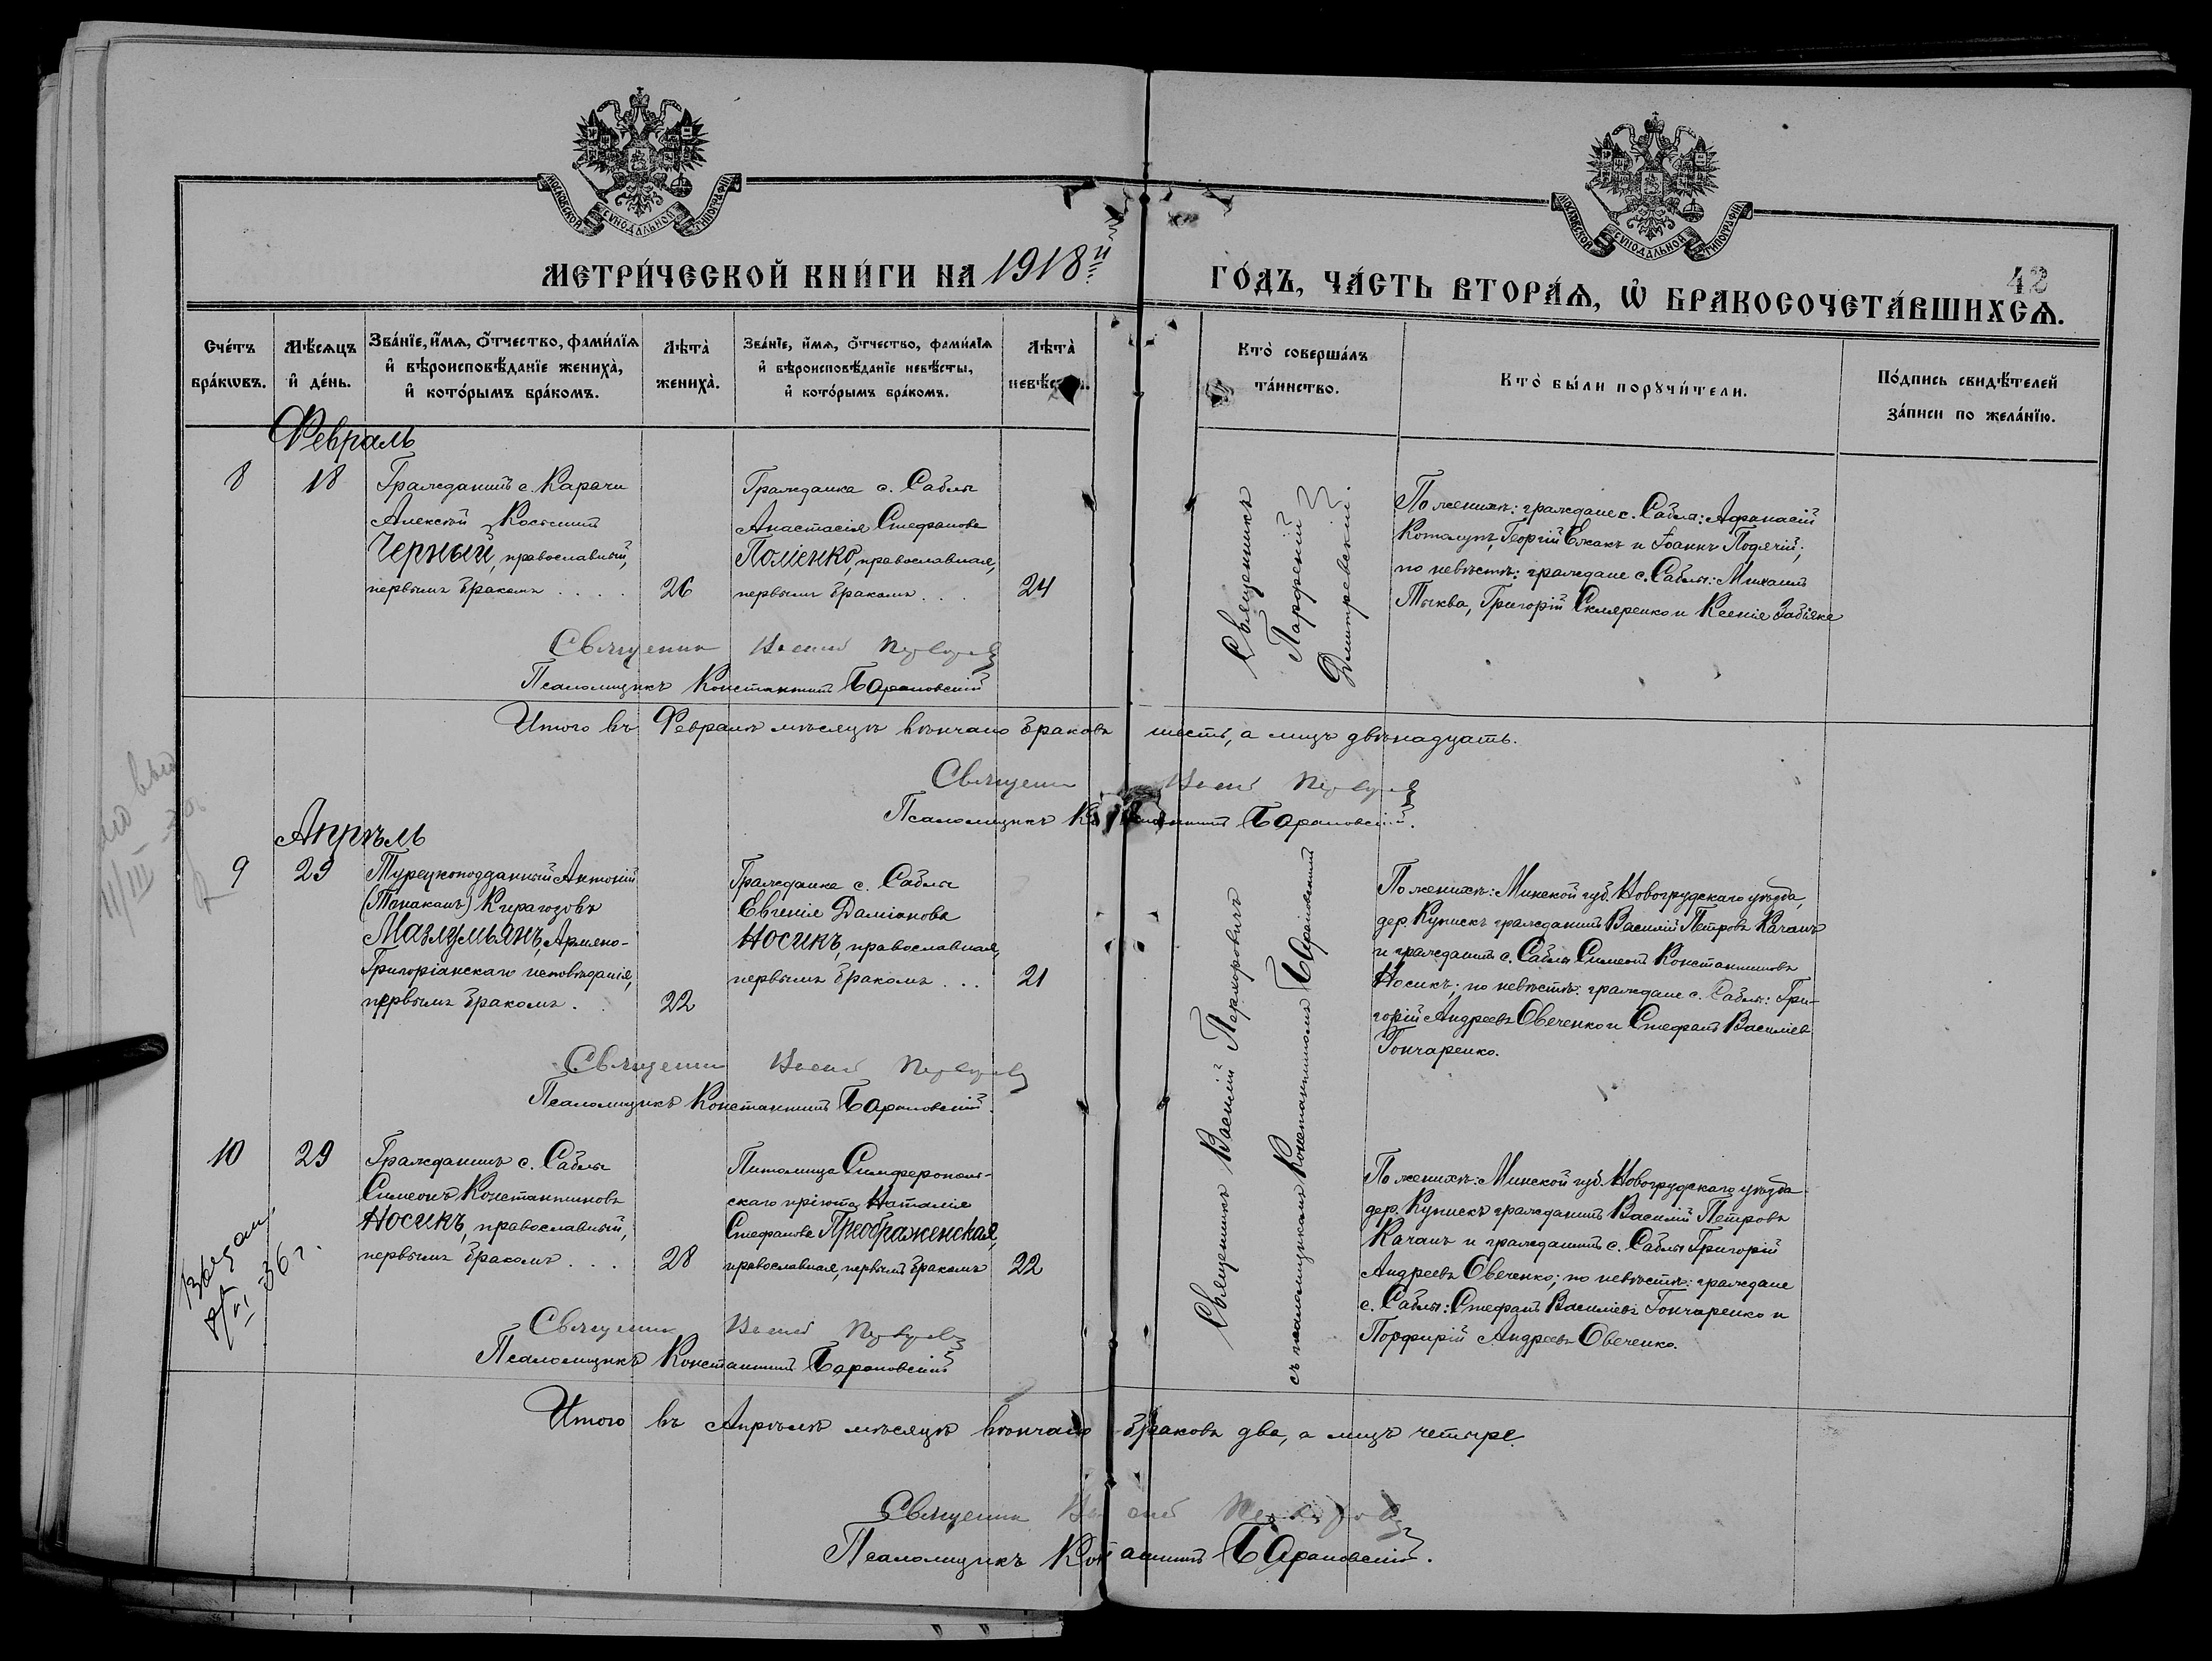 МОСКОВСКОЙ СѴНОДАЛЬНОЙ ТИПОГРАФІИ
МОСКОВСКОЙ СѴНОДАЛЬНОЙ ТИПОГРАФІИ
МЕТРИ́ЧЕСКОЙ КНИ́ГИ НА 1918й
ГО́ДЪ, ЧА́СТЬ ВТОРА́Ѧ, Ѡ҆ БРАКОСОЧЕТА́ВШИХСѦ.
42
Сче́тъ
бра́кѡвъ.
Мѣ́сѧцъ
и҆ де́нь.
Зва́нїе, и҆́мѧ, ѻ҆́тчество, фами́лїѧ
и҆ вѣроисповѣ́данїе жениха̀,
и҆ кото́рымъ бра́комъ.
Лѣта̀
жениха̀.
Зва́нїе, и҆́мѧ, ѻ҆́тчество, фами́лїѧ
и҆ вѣроисповѣ́данїе невѣ́сты,
и҆ кото́рымъ бра́комъ.
Лѣта̀
невѣ́сты.
Кто̀ соверша́лъ
та́инство.
Кто̀ бы́ли порꙋчи́тели.
По́дпись свидѣ́телей
за́писи по жела́нїю.
Февраль
8
18
Гражданинъ с. Карачи
Алексѣй
Черный, православный,
первымъ бракомъ . . . .
26
Гражданка с. Саблы
Анастасія Стефанова
Поліенко, православная,
первымъ бракомъ . . .
24
Священникъ
Парфеній
Димитревскій.
По женихѣ: граждане с. Саблы: Афанасій
Котолупъ, Георгій Ежакъ и Іоаннъ Подячій;
по невѣстѣ: граждане с. Саблы: Михаилъ
Тыква, Григорій Скляренко и Ксенія Забіяка
Священник
Псаломщикъ Константинъ Барановскій
Итого въ Февралѣ мѣсяцѣ вѣнчано браковъ шесть, а лицъ двѣнадцать.
Священник
Псаломщикъ Константинъ Барановскій.
Апрѣль
9
29
Турецкоподданный Антоній
(Танаканъ) Кирагозовъ
Мазлумьянъ, Армяно-
Григоріанскаго исповѣданія,
первымъ бракомъ . .
22
Гражданка с. Саблы
Евгенія Даміанова
Носикъ, православная,
первымъ бракомъ . . .
21
Священникъ Василій Перхоровичъ
съ псаломщикомъ Константиномъ Барановскимъ
По женихѣ: Минской губ. Новогрудскаго уѣзда,
дер. Купискъ гражданинъ Василій Петровъ Качанъ
и гражданинъ с. Саблы Симеонъ Константиновъ
Носикъ; по невѣстѣ: граждане с. Саблы: Гри-
горій Андреевъ Овеченко и Стефанъ Василіевъ
Гончаренко.
Священник
Псаломщикъ Константинъ Барановскій.
10
29
Гражданинъ с. Саблы
Симеонъ Константиновъ
Носикъ, православный,
первымъ бракомъ . . .
28
Питомица Симферополь-
скаго пріюта Наталія
Стефанова Преображенская,
православная, первымъ бракомъ
22
По женихѣ: Минской губ. Новогрудскаго уѣзда
дер. Купискъ гражданинъ Василій Петровъ
Качанъ и гражданинъ с. Саблы Григорій
Андреевъ Овеченко; по невѣстѣ: граждане
с. Саблы: Стефанъ Василіевъ Гончаренко и
Порфирій Андреевъ Овеченко.
Священник
Псаломщикъ Константинъ Барановскій
Итого въ Апрѣлѣ мѣсяцѣ вѣнчано браковъ два, а лицъ четыре.
Священник
Псаломщикъ Константинъ Барановскій.